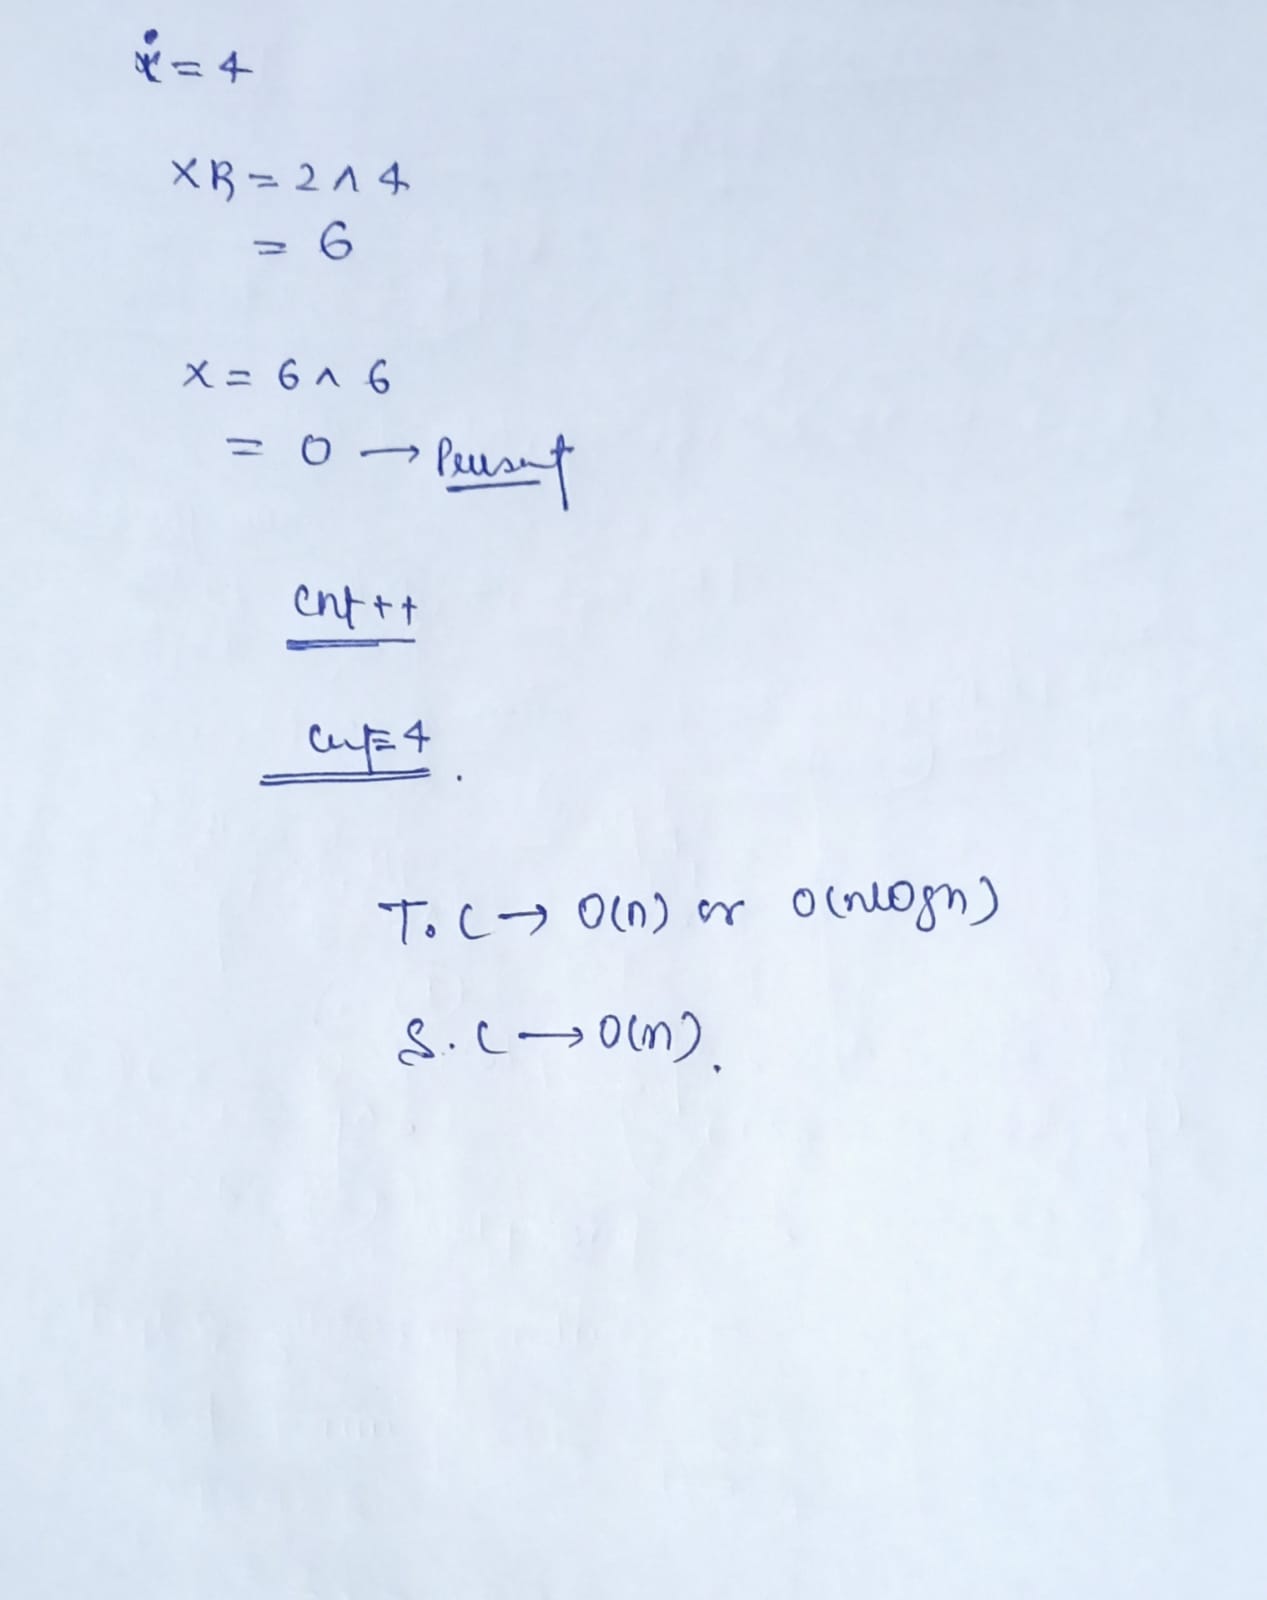 i = 4
XR = 2 ^ 4
= 6
X = 6 ^ 6
= 0 → Present
cnt++
cnt = 4.
T.C → O(n) or O(nlogn)
S.C → O(n).